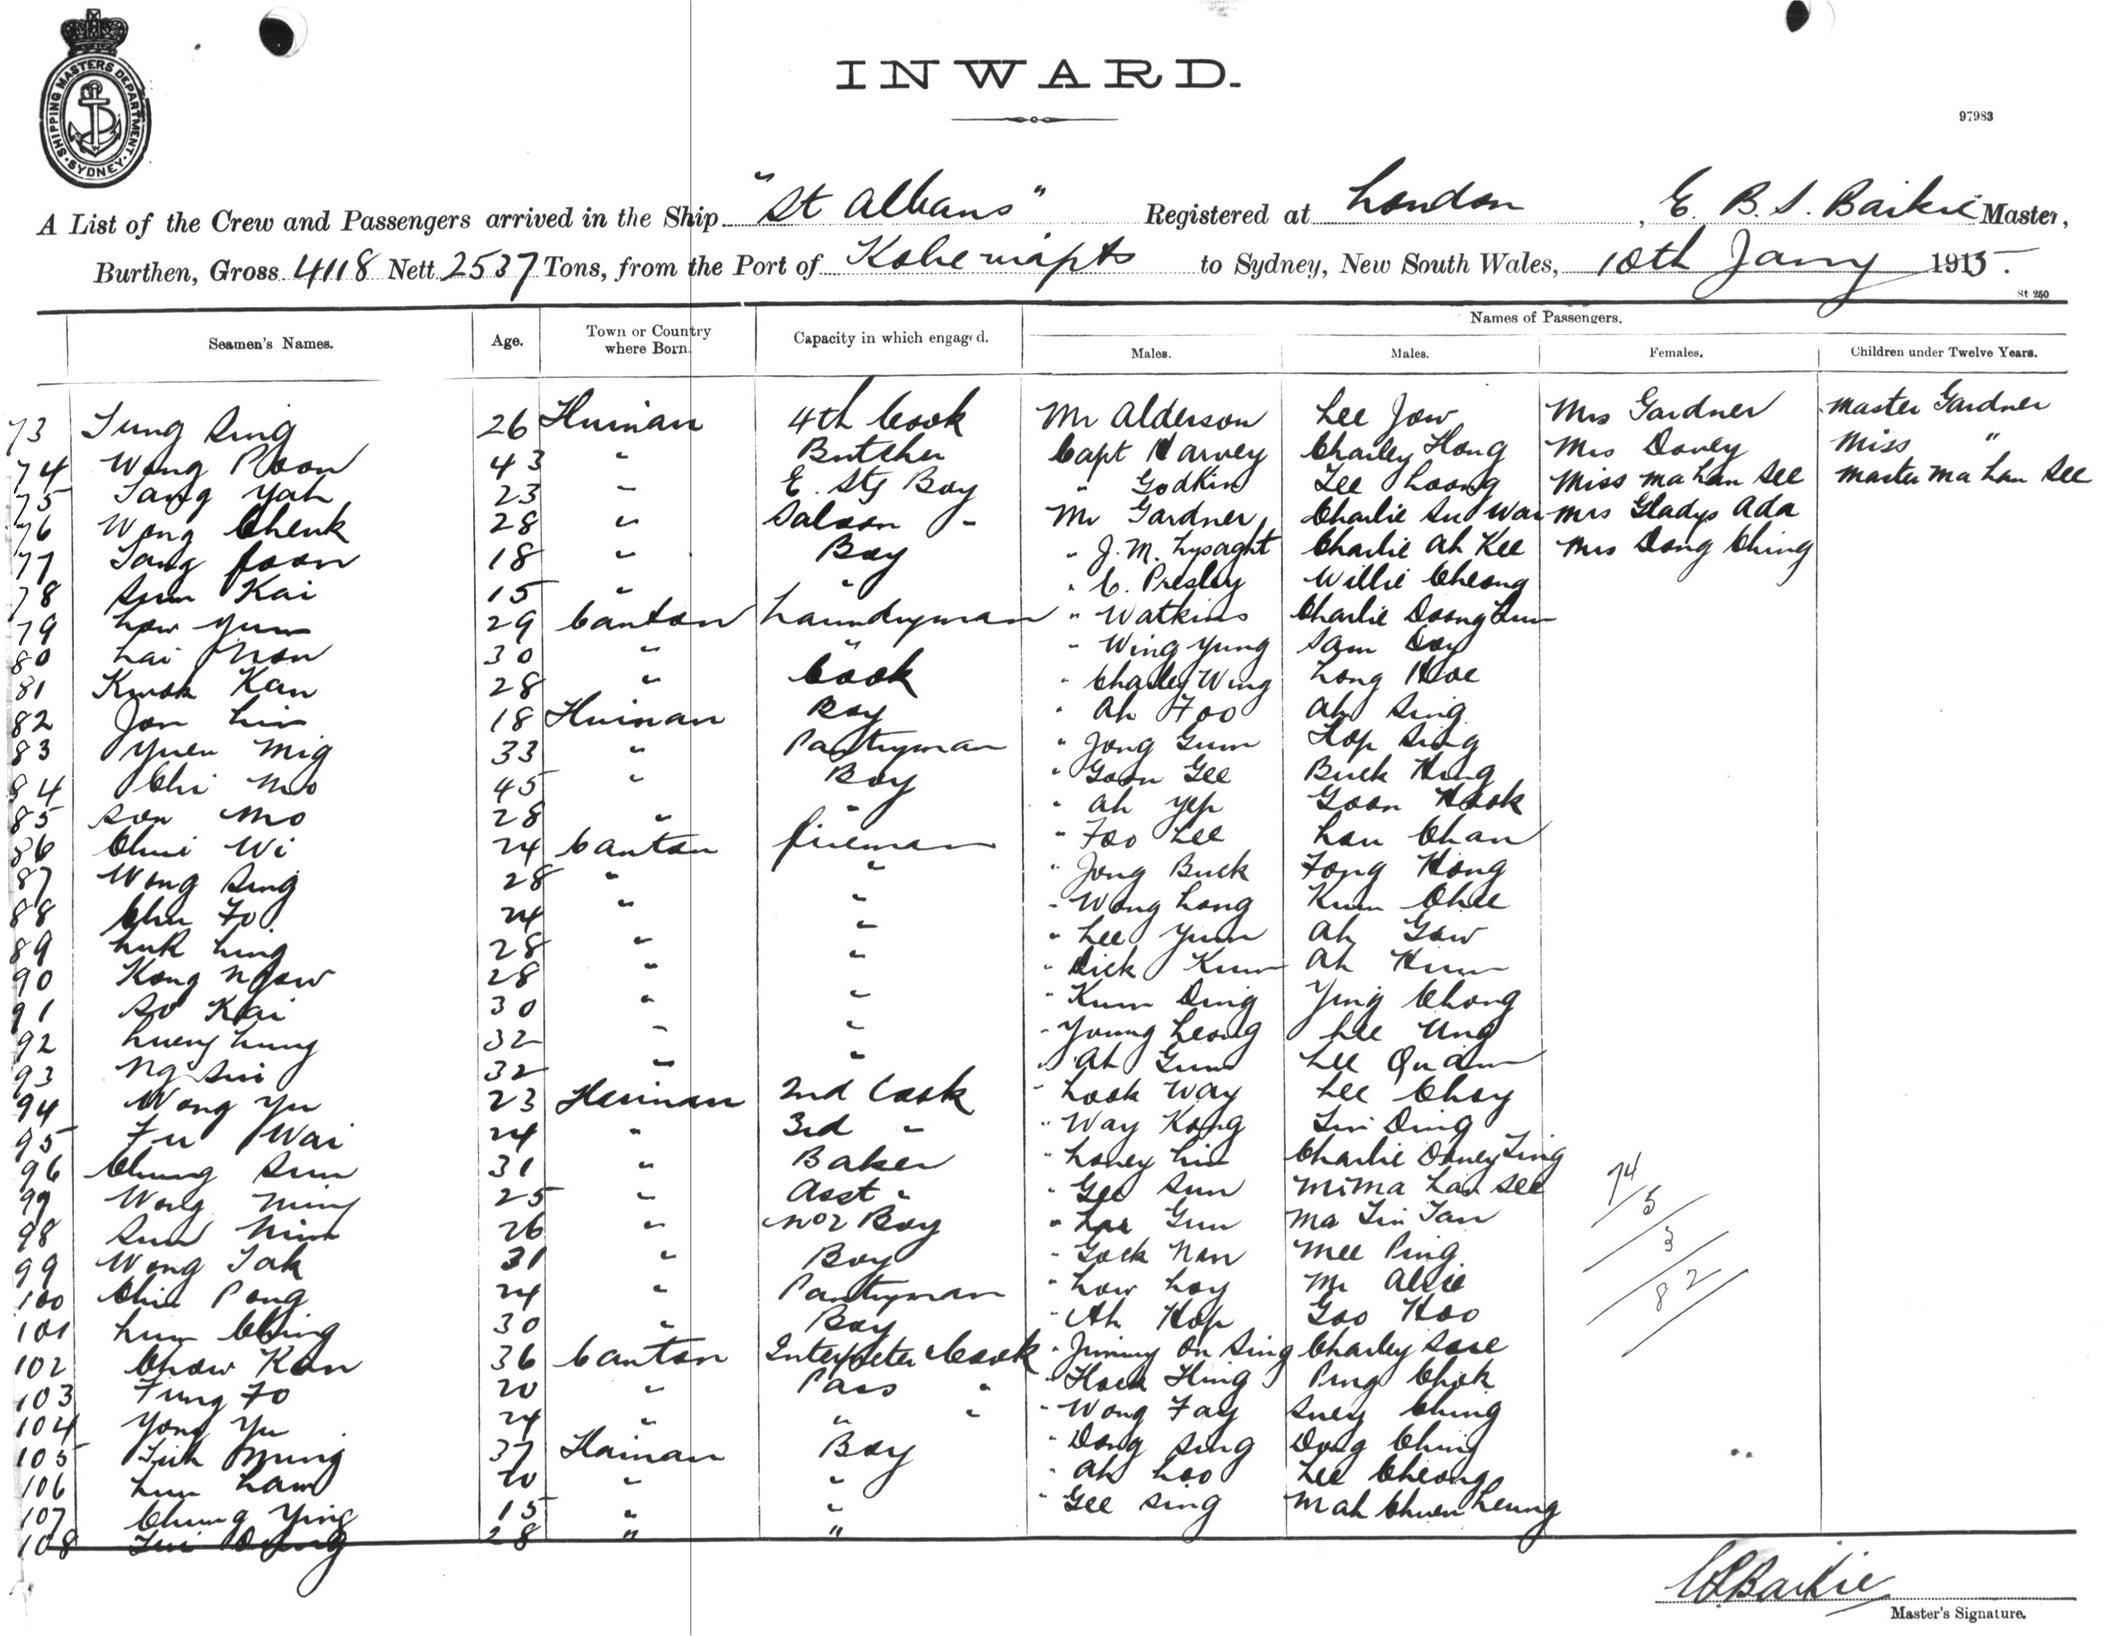 SHIPPING MASTERS DEPARTMENT · SYDNEY ·
INWARD.
97983
A List of the Crew and Passengers arrived in the Ship "St Albans" Registered at London, E. B. S. Baikie Master,
Burthen, Gross 4118 Nett 2537 Tons, from the Port of Kobe to Sydney, New South Wales, 10th Jany 1915.
St 250
Names of Passengers.
Seamen's Names. Age. Town or Country where Born. Capacity in which engaged. Males. Males. Females. Children under Twelve Years.
73 Sing 26 Hainan 4th Cook Mr Alderson Lee Jow Mrs Gardner Master Gardner
74 Wong Poon 43 " Butcher Capt Harvey Charley Hong Mrs Dovey Miss "
75 Yah 23 " E. Stg Boy " Godkin Lee Loong Miss Ma Lan See Master Ma Lan See
76 Wong Chenk 28 " Saloon " Mr Gardner Charlie Su Wai Mrs Gladys Ada
77 Foon 18 " Boy " J. M. Lysaght Charlie Ah Kee Mrs Dong Ching
78 Sum Kai 15 " " " C. Presley Willie Cheong
79 Low Yum 29 Canton Laundryman " Watkins Charlie Doong Lum
80 Lai Non 30 " " " Wing Yung Sam Day
81 Kwok Kan 28 " Cook " Charley Wing Long Hoe
82 Jon Lim 18 Hainan Boy " Ah Foo Ah Sing
83 Yuen Mig 33 " Pantryman " Jong Gum Hop Sing
84 Chi Mo 45 " Boy " Goon Gee Buck Hing
85 Son Mo 28 " " " Ah Yep Goon Hook
86 Chui Wi 24 Canton fireman " Foo Lee Lou Chan
87 Wong Sing 28 " " " Jong Buck Fong Hong
88 Chu Fo 24 " " " Wong Long Kum Chee
89 Luk Ling 28 " " " Lee Yum Ah Gow
90 Kong Ngow 28 " " " Dick Kum Ah Hum
91 So Kai 30 " " " Kum Ding Ying Chong
92 Lueng Lung 32 " " " Young Leong Lee Ung
93 Ng Sui 32 " " " Ah Gum Lee Quam
94 Wong Yu 23 Hainan 2nd Cook " Look Way Lee Choy
95 Fu Wai 24 " 3rd " " Way Kong Lin Ding
96 Chung Sum 31 " Baker " Loney Lim Charlie Doney Ting
97 Wong Ning 25 " Asst " " Gee Sun Mi Ma Lan See
98 Sum Nim 26 " No 2 Boy " Lee Gum Ma Lin Tan
99 Wong Tak 31 " Boy " Gock Nan Mee Ping
100 Chin Pong 24 " Pantryman " Low Loy Mr Alvie
101 Lum Ching 30 " Boy " Ah Hop Goo Hoo
102 Chow Kan 36 Canton Interpreter Cook " Jimmy On Sing Charley Sore
103 Fung Fo 20 " Pass " " Hock Hing Ping Chok
104 Yong Yu 24 " " " " Wong Fay Suey Ching
105 Mung 37 Hainan Boy " Dong Sing Dong Ching
106 Lum Lam 20 " " " Ah Loo Lee Cheong
107 Chung Ying 15 " " " Gee Sing Mah Chuen Leung
108 28 " "
74
5
3
82
Baikie
Master's Signature.